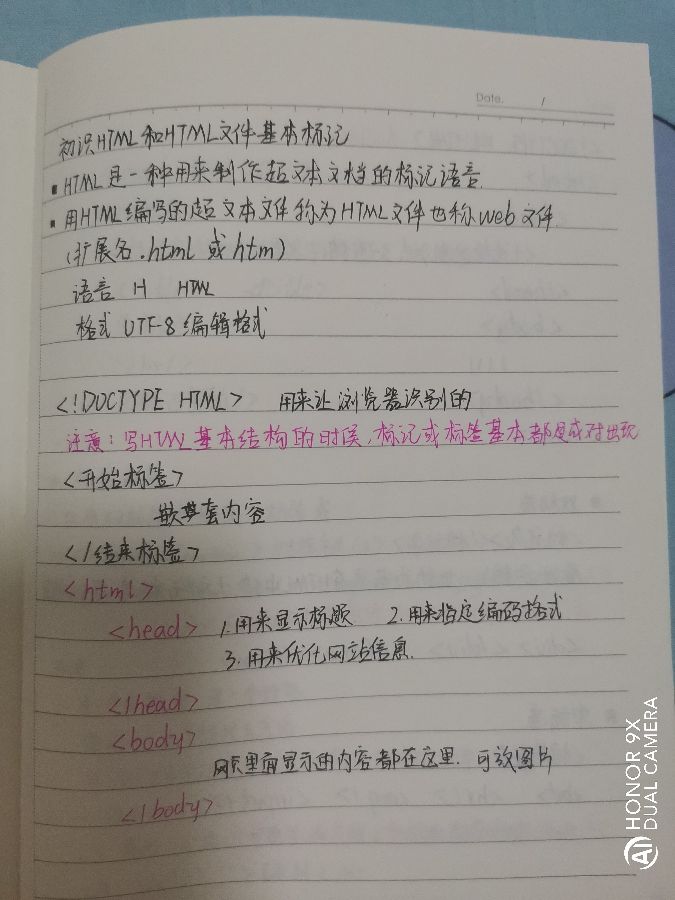 Date. /
初识HTML和HTML文件基本标记
▪ HTML是一种用来制作超文本文档的标记语言.
▪ 用HTML编写的超文本文件称为HTML文件也称web文件.
(扩展名.html 或 htm)
语言 H HTML
格式 UTF-8 编辑格式
<!DOCTYPE HTML> 用来让浏览器识别的
注意:写HTML基本结构的时候,标记或标签基本都是成对出现
<开始标签>
嵌套内容
</结束标签>
<html>
<head> 1.用来显示标题 2.用来指定编码格式
3.用来优化网站信息.
</head>
<body>
网页里面显示的内容都在这里.可放图片
</body>
HONOR 9X
DUAL CAMERA